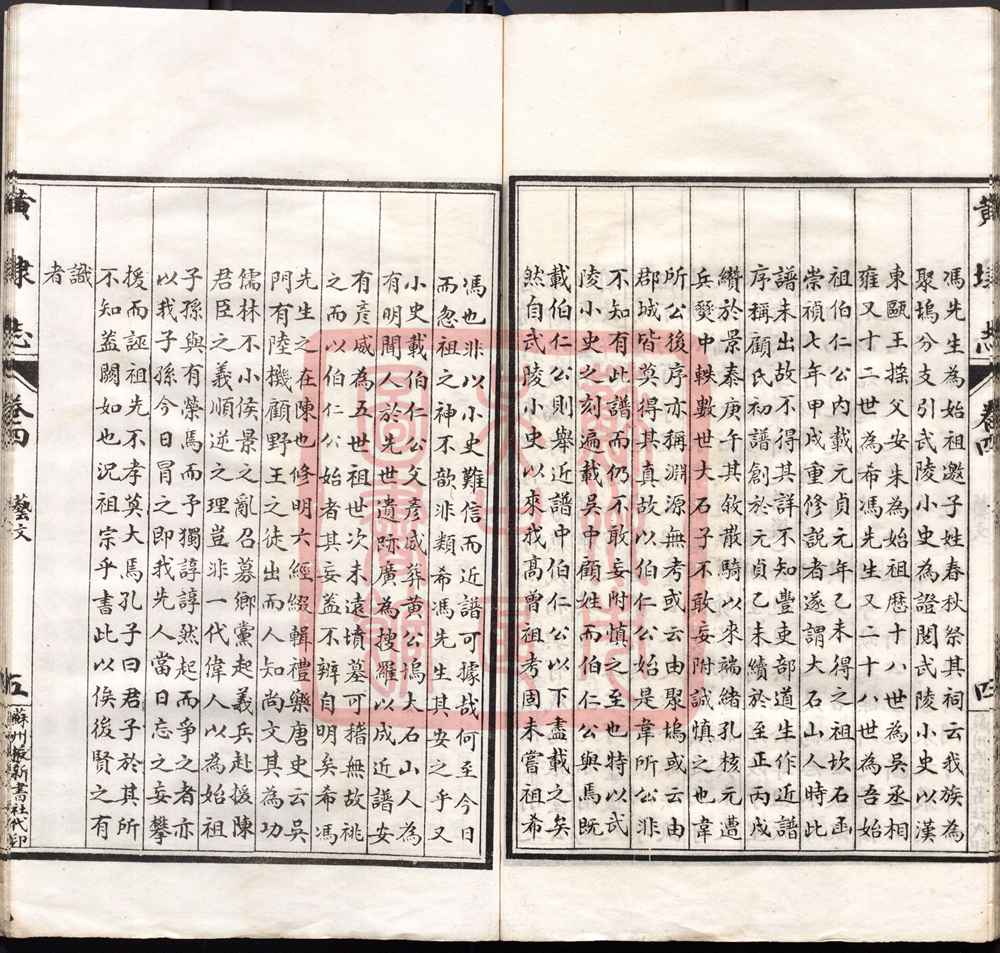 馮先生為始祖邀子姓春秋祭其祠云我族為
聚塢分支引武陵小史為證閱武陵小史以漢
東甌王揺父安朱為始祖歷十八世為吳丞相
雍又十二世為希馮先生又二十八世為吾始
祖伯仁公內載元貞元年己未得之祖坎石函
崇禎七年甲戌重修説者遂謂大石山人時此
譜未出故不得其詳不知豐吏部道生作近譜
序稱顧氏初譜創於元貞乙未續於至正丙戌
纘於景泰庚午其敘散騎以來端緒孔核元遭
兵燹中軼數世大石子不敢妄附誠慎之也韋
所公後序亦稱淵源無考或云由聚塢或云由
郡城皆莫得其真故以伯仁公始是韋所公非
不知有此譜而仍不敢妄附慎之至也特以武
陵小史之刻遍載吳中顧姓而伯仁公與馬既
載伯仁公則舉近譜中伯仁公以下盡載之矣
然自武陵小史以來我高曾祖考固未嘗祖希
黄埭志 卷四 四
馮也非以小史難信而近譜可據哉何至今日
而忽祖之神不歆非類希馮先生其安之乎又
小史載伯仁公父彥咸葬黄公塢大石山人為
有明聞人於先世遺跡廣為搜羅以成近譜安
有彥咸為五世祖世次未遠墳墓可稽無故祧
之而以伯仁公始者其妄益不辨自明矣希馮
先生之在陳也修明六經綴輯禮樂唐史云吳
門有陸機顧野王之徒出而人知尚文其為功
儒林不不小侯景之亂召募鄉黨起義兵赴援陳
君臣之義順逆之理豈非一代偉人以為始祖
子孫與有榮馬而予獨諄諄然起而爭之者亦
以我子孫今日冒之即我先人當日忘之妄攀
援而誣祖先不孝莫大馬孔子曰君子於其所
不知蓋闕如也況祖宗乎書此以俟後賢之有
識者
黄埭志 卷四 藝文 五
蘇州振新書社代印